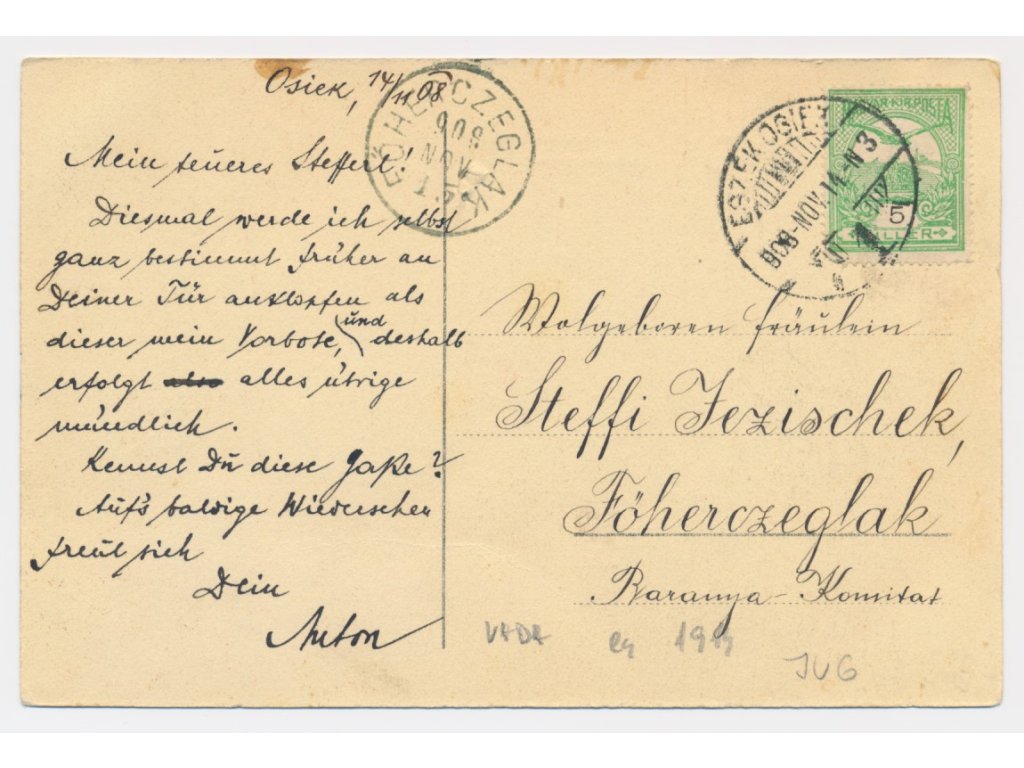 Osiek, 14/11 08
Mein teueres Stefferl!
Diesmal werde ich selbst
ganz bestimmt früher an
Deiner Tür anklopfen als
dieser mein Vorbote, und deshalb
erfolgt also alles übrige
mündlich.
Kennst Du diese Gaße?
Auf's baldige Wiedersehen
freut sich
Dein
Anton
FŐHERCZEGLAK
908
NOV
ESZÉK OSIEK
908-NOV.14.-N 3
MAGYAR KIR. POSTA
5
FILLER
Wolgeboren Fräulein
Steffi Jezischek,
Föherczeglak
Baranya-Komitat
JUG